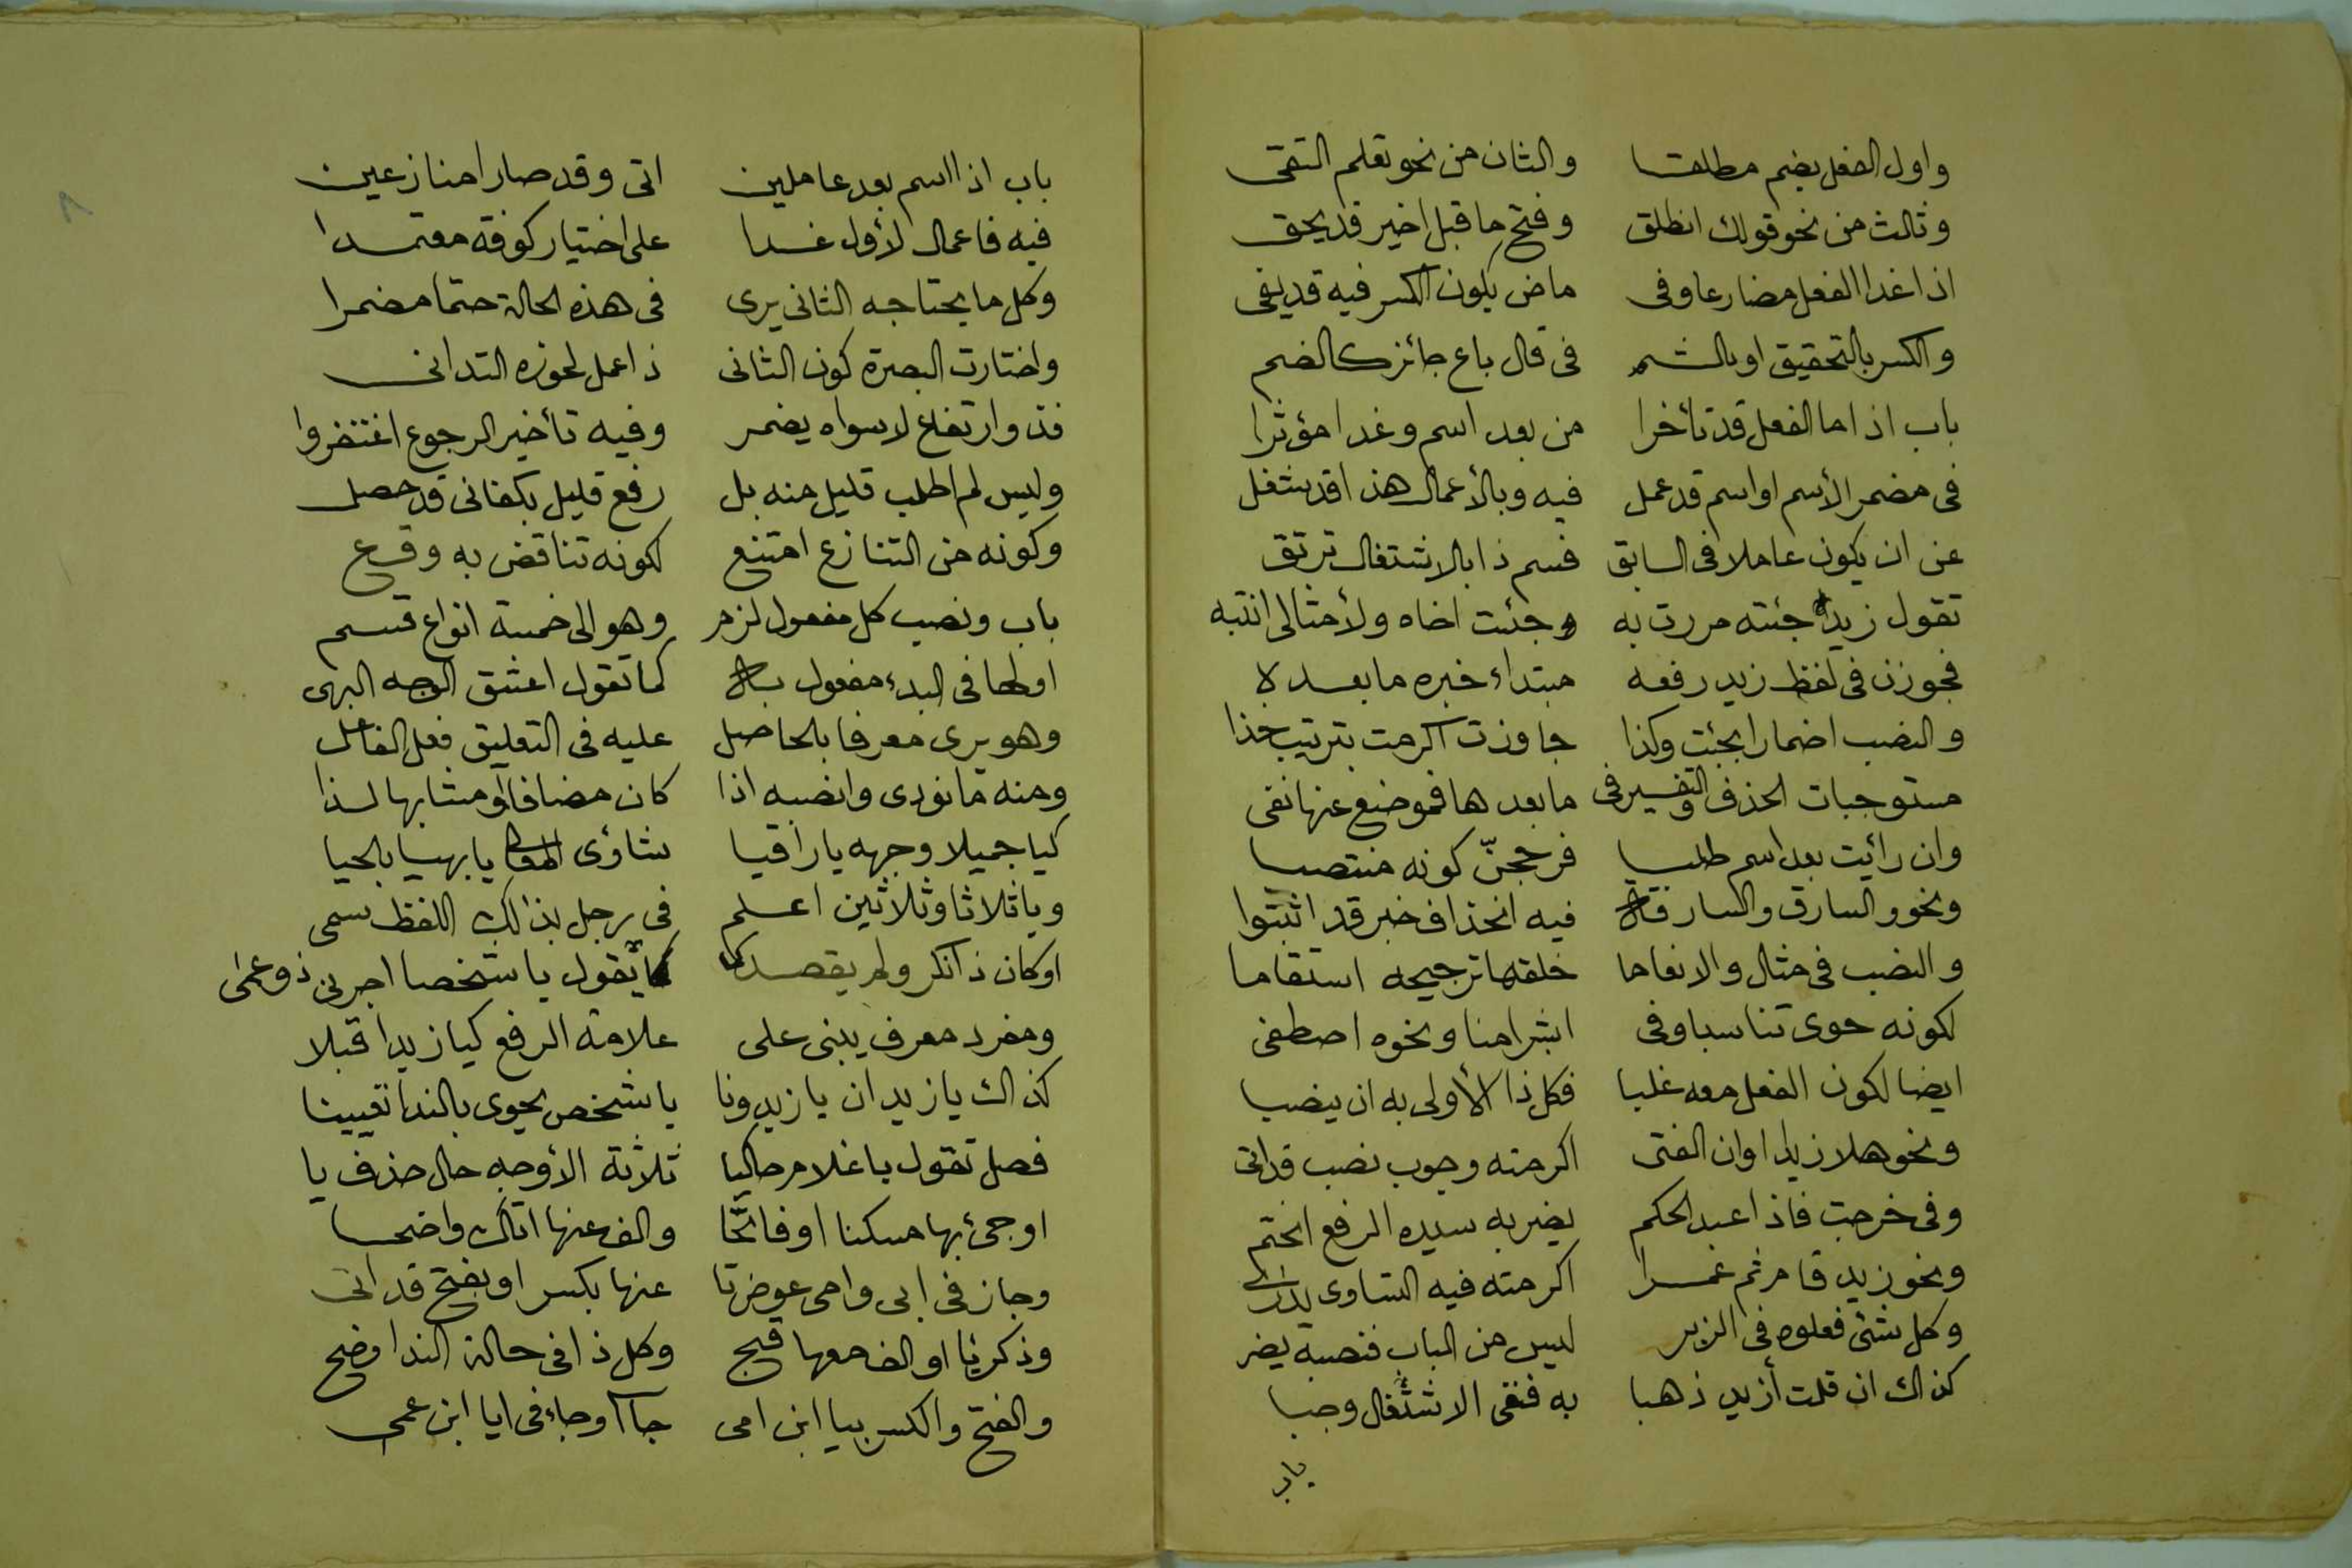 واول الفعل يضم مطلقا والثان من نحو تعلم التقى
وثالث من نحو قولك انطلق وفتح ما قبل اخير قد يحق
اذا غدا الفعل مضارعا وفى ماض يكون الكسر فيه قد يفى
والكسر بالتحقيق او بالشم فى قال باع جائز كالضم
باب اذا ما الفعل قد تأخرا من بعد اسم وغدا مؤثرا
فى مضمر الأسم او اسم قد عمل فيه وبالأعمال هذا قد شغل
عن ان يكون عاملا فى السابق فسم ذا بالاشتغال ترتق
تقول زيدا جئته مررت به وجئت اخاه ولأمثالى انتبه
فجوزن فى لفظ زيد رفعه مبتداء خبره ما بعد لا
والنصب اضمارا بجئت وكذا جاوزت اكرمت بترتيب خذا
مستوجبات الحذف والتفسير فى ما بعدها فموضع عنها نفى
وان رائيت بعد اسم طلبا فرجحنّ كونه منتصبا
ونحو والسارق والسارقة فيه انحذاف خبر قد اثبتوا
والنصب فى مثال والانعاما خلقها ترجيحه استقاما
لكونه حوى تناسبا وفى ابشرا منا ونحوه اصطفى
ايضا لكون الفعل معه غلبا فكل ذا الأولى به ان ينصبا
ونحو هلا زيدا وان الفتى اكرمته وجوب نصب قد اتى
وفى خرجت فاذا عبد الحكم يضربه سيده الرفع انختم
ونحو زيد قام ثم عمرا اكرمته فيه التساوى يدرى
وكل شئ فعلوه فى الزبر ليس من الباب فنصبه يضر
كذاك ان قلت أزيد ذهبا به فنفى الاشتغال وجبا
باب
باب اذا اسم بعد عاملين اتى وقد صارا منازعين
فيه فاعمال لأول غدا على اختيار كوفة معتمدا
وكل ما يحتاجه الثانى يرى فى هذه الحالة حتما مضمرا
واختارت البصرة كون الثانى ذا عمل لحوزه التدانى
فذو ارتفاع لا سواه يضمر وفيه تأخير الرجوع اغتفروا
وليس لم اطلب قليل منه بل رفع قليل بكفانى قد حصل
وكونه من التنازع امتنع لكونه تناقض به وقع
باب ونصب كل مفعول لزم وهو الى خمسة انواع قسم
اولها فى البدء مفعول به كما تقول اعشق الوجه البهى
وهو يرى معرفا بالحاصل عليه فى التعليق فعل الفاعل
ومنه ما نودى وانصبه اذا كان مضافا او مشابها لذا
كيا جميلا وجهه يا راقيا شاؤى يا بهيا بالحيا
ويا ثلاثا وثلاثين اعلم فى رجل بذلك اللفظ سمى
او كان ذا نكر ولم يقصد كما يقول يا شخصا اجرنى ذو عمى
ومفرد معرف يبنى على علامة الرفع كيا زيد اقبلا
كذاك يا زيدان يا زيدونا يا شخص يحوى بالندا تعيينا
فصل تقول يا غلام حاكيا ثلاثة الأوجه حال حذف يا
او جئ بها مسكنا او فاتحا والف عنها اتاك واضحا
وجاز فى ابى وامى عوض تا عنها بكسر او بفتح قد اتى
وذكر يا او الف معها قبح وكل ذا فى حالة الندا وضح
والفتح والكسر بيا ابن امى جاآ وجاء فى ايا ابن عمى